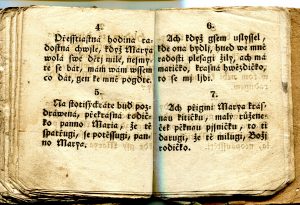 4.
Přessťastná hodina ra-
dostná chwjle, když Marya
wola swé dětj milé, nejmy-
te se bát, mám wám wssem
co dát, gen ke mně pogďte.
5.
Na stotisýckráte buď poz-
drawená, překrásná rodič-
ko panno Maria, že tě
spatřugi, se potěssugi, pan-
no Marya.
6.
Ach když gsem uslyssel,
kde ona bydlj, hned we mně
radosti plesagi žily, ach má
matičko, krásná hwězdičko,
to se mj ljbi.
7.
Ach přigmi Marya krás-
nau kitičku, malý růžene-
ček pěknau pjsničku, to ti
dawugi, že tě milugi, Božj
rodičko.